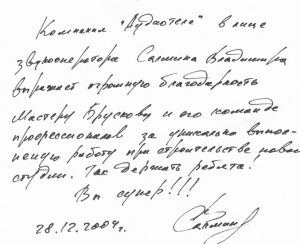 Компания "Аудиотела" в лице
звукооператора Салмина Владимира
выражает огромную благодарность
Мастеру Брускову и его команде
профессионалов за уникально выпол-
ненную работу при строительстве новой
студии. Так держать ребята!
Вы супер!!!
28.12.2004г. Салмин